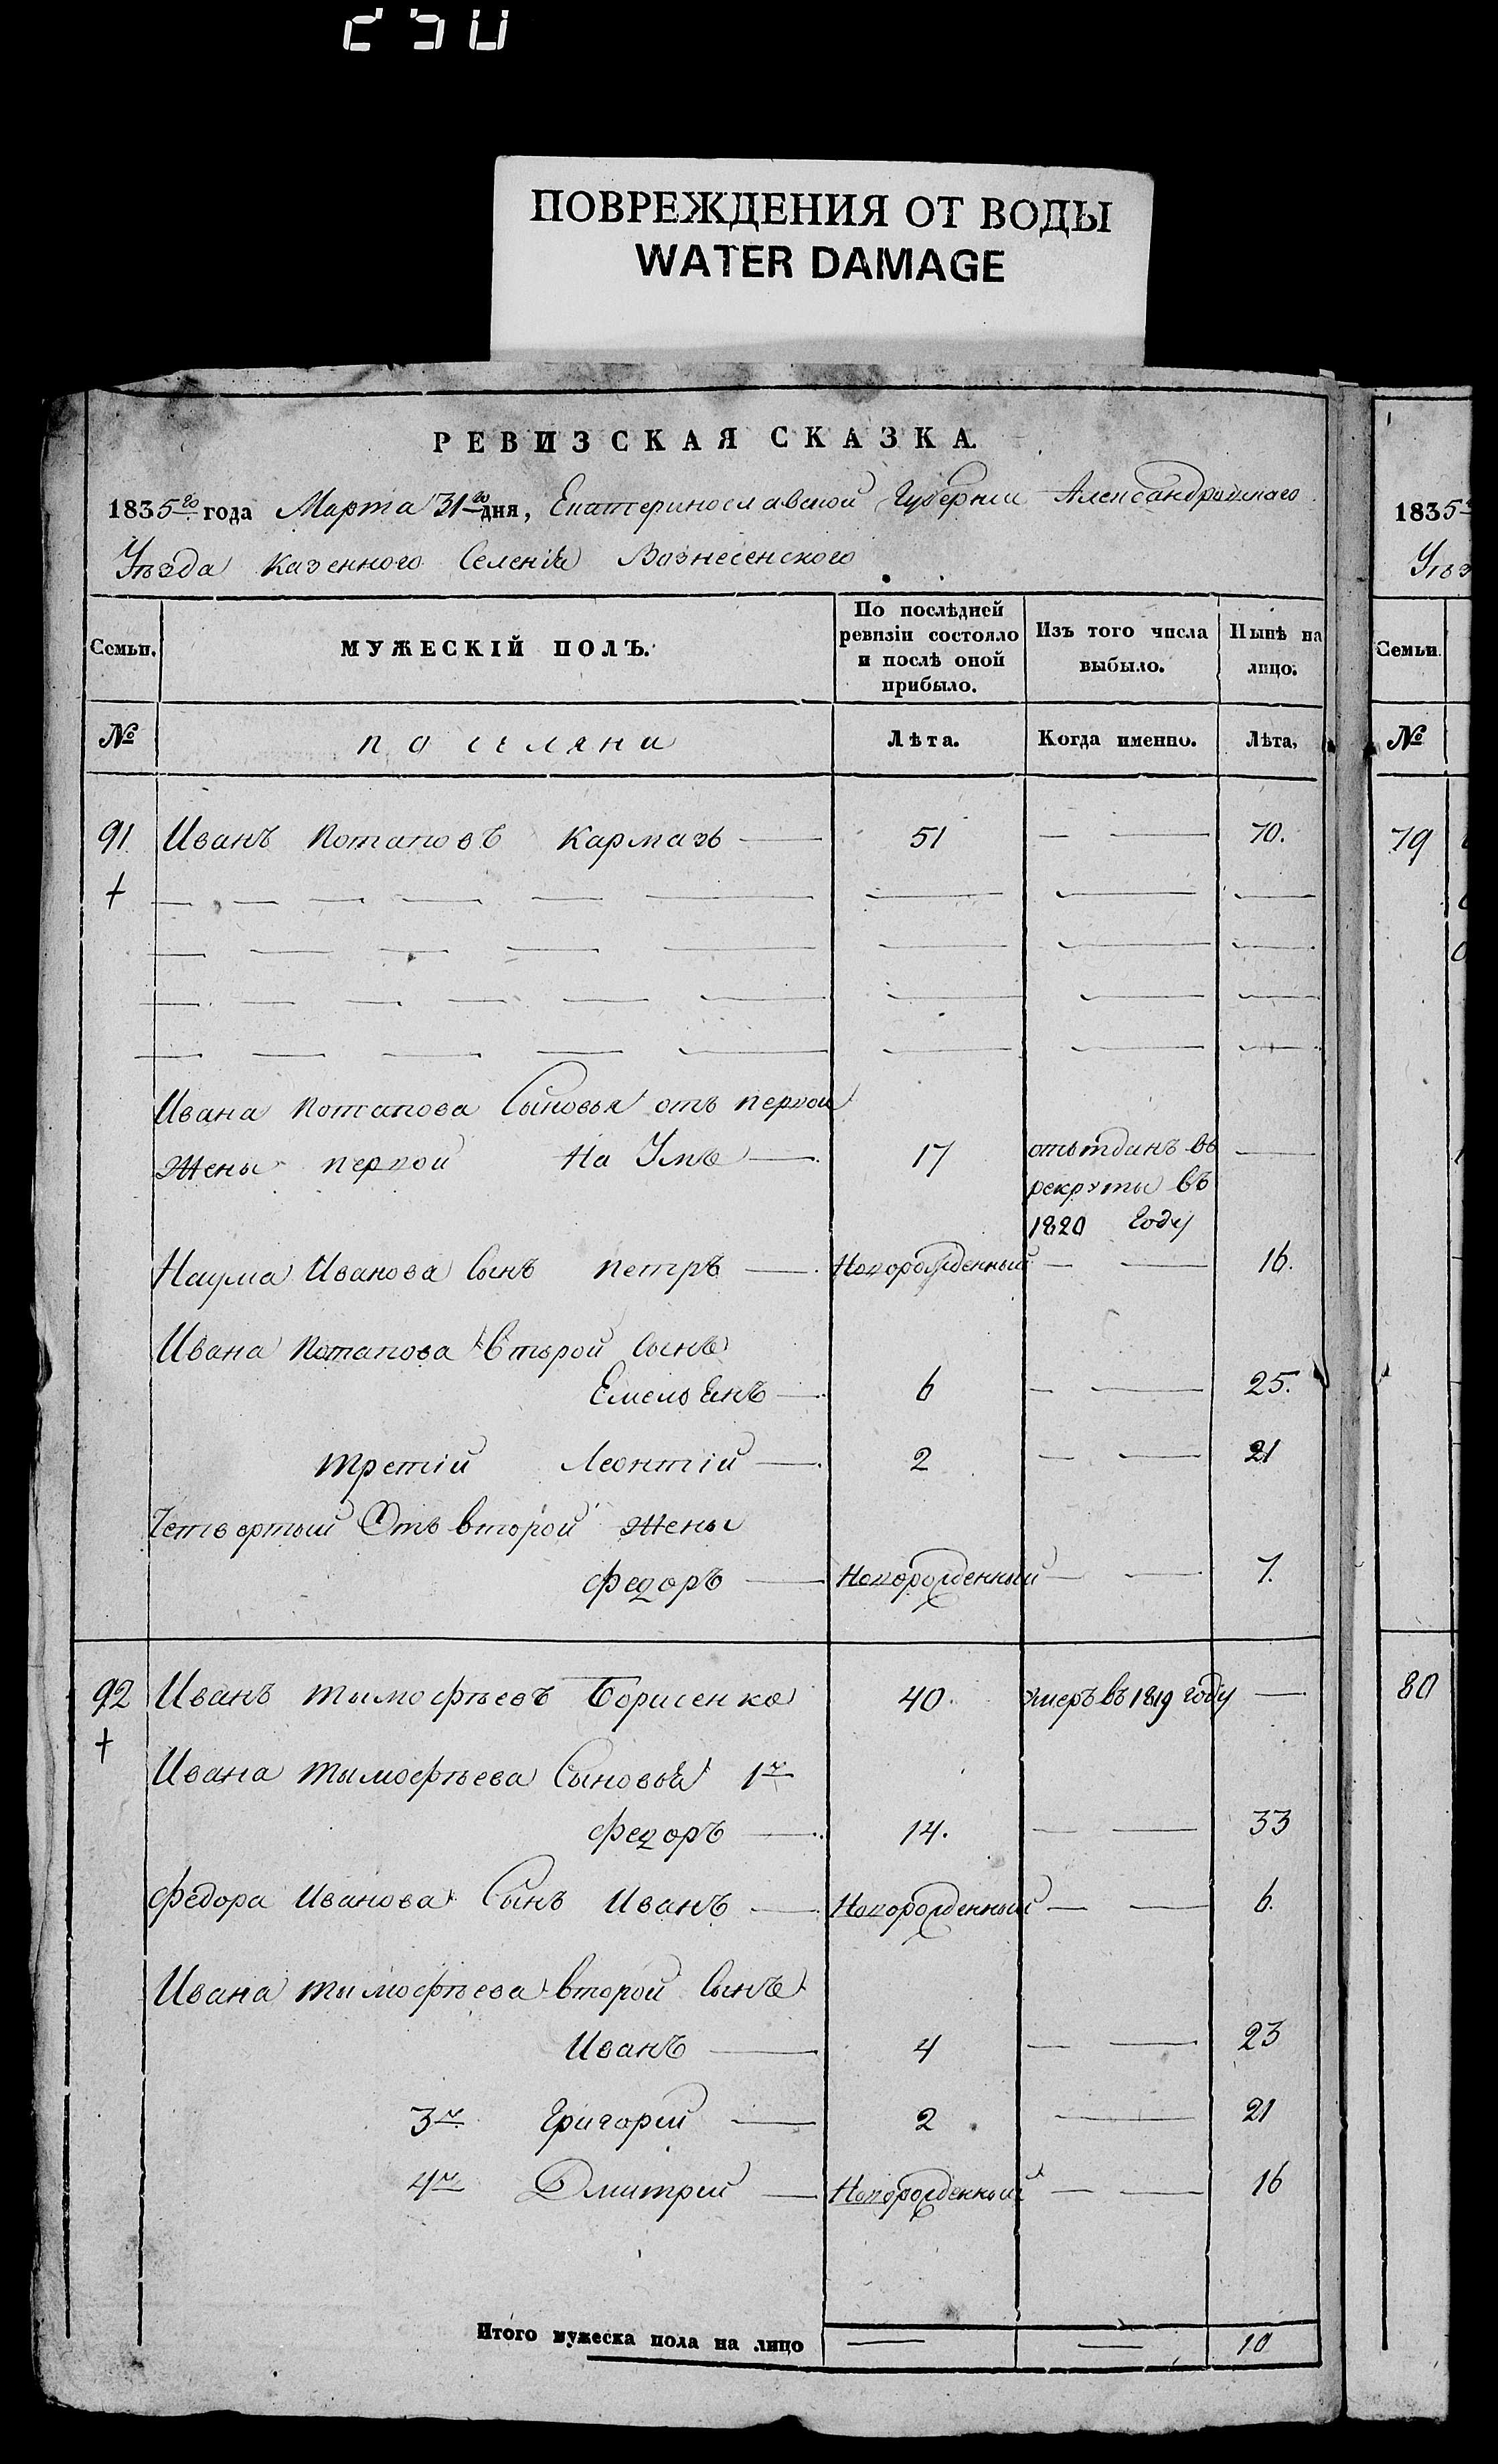 ПОВРЕЖДЕНИЯ ОТ ВОДЫ
WATER DAMAGE
РЕВИЗСКАЯ СКАЗКА.
1835го года Марта 31го дня, Екатеринославской Губернии Александровскаго
Уѣзда Казенного Селенія Вознесенского
Семьи. МУЖЕСКІЙ ПОЛЪ. По послѣдней ревизіи состояло и послѣ оной прибыло. Изъ того числа выбыло. Нынѣ на лицо.
№ поселяни Лѣта. Когда именно. Лѣта.
91 Иванъ Потаповъ Кармазь — 51 — — 70.
Ивана Потапова Сыновья отъ первой
жены первой На Умъ — 17 отътданъ въ —
рекруты въ
1820 Году
Наума Иванова Сынъ Петръ — Новорожденный — — 16.
Ивана Потапова второй Сынъ
Емельянъ — 6 — — 25.
третій Леонтій — 2 — — 21
Четвертый Отъ второй жены
Федоръ — Новорожденный — — 7.
92 Иванъ тымофѣевъ Борисенко 40. умеръ въ 1819 году —
Ивана тымофѣева Сыновья 1й
Федоръ — 14. — — 33
Федора Иванова Сынъ Иванъ — Новорожденный — — 6.
Ивана тымофѣева второй Сынъ
Иванъ — 4 — — 23
3й Григорий — 2 — 21
4й Дмитрий — Новорожденный — — 16
Итого мужеска пола на лицо — — 10
1835
Уѣз
Семьи.
№
79
80